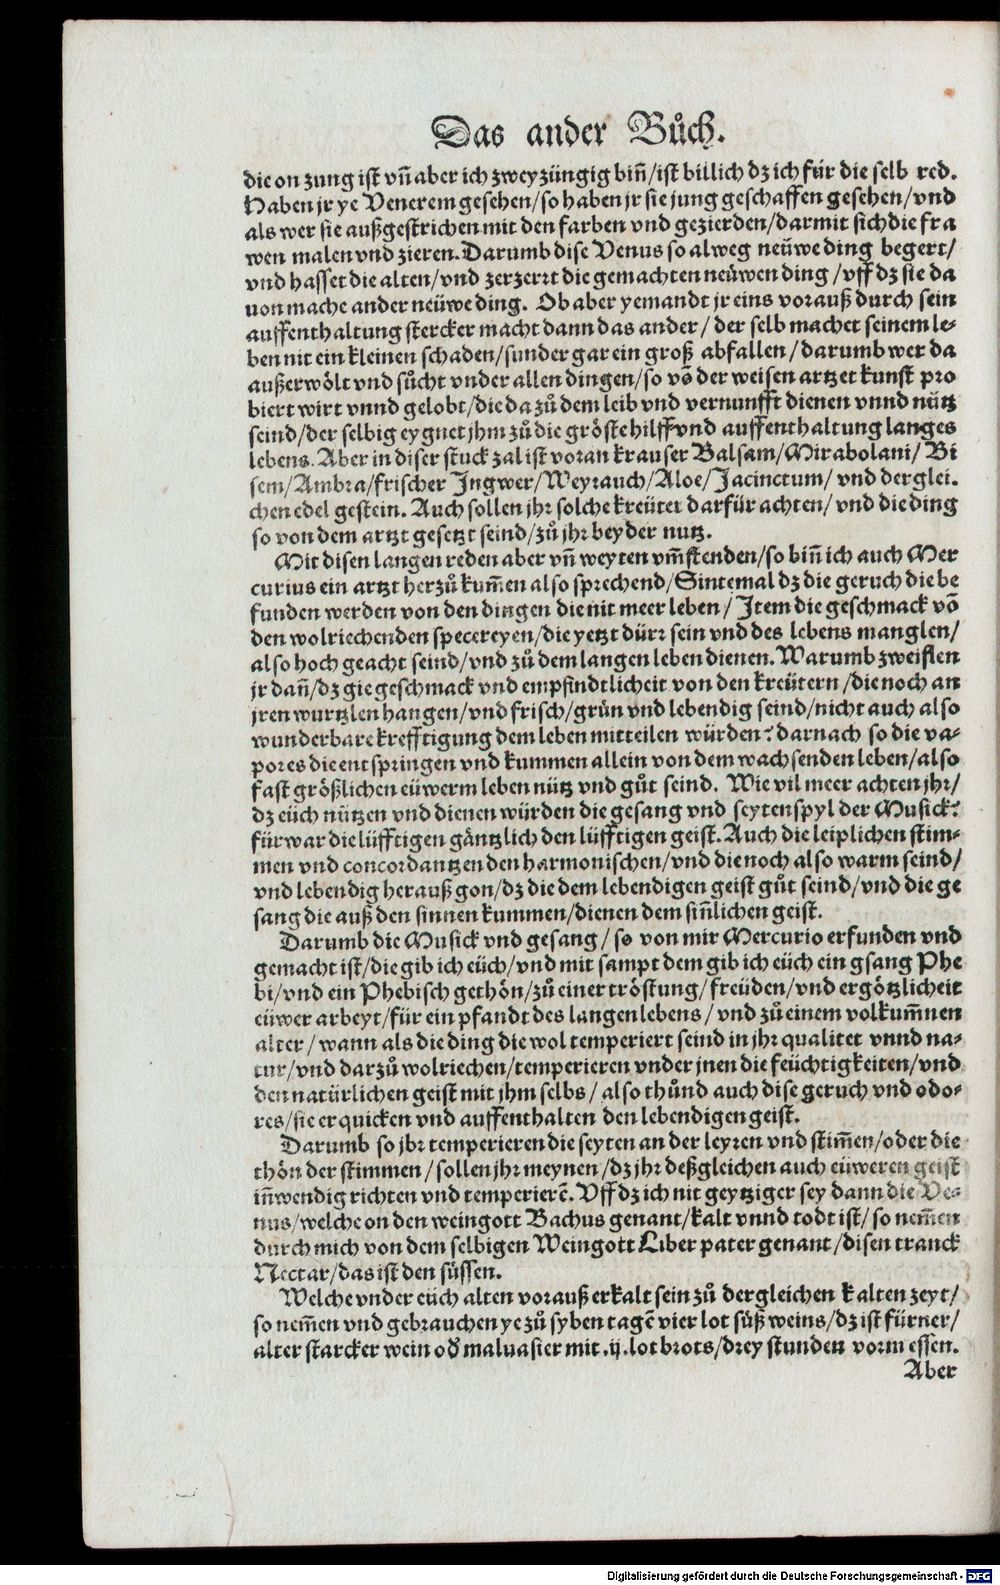 Das ander Bůch.
die on zung ist vñ aber ich zweyzüngig biñ/ist billich dz ich für die selb red.
Haben jr ye Venerem gesehen/so haben jr sie jung geschaffen gesehen/vnd
als wer sie außgestrichen mit den farben vnd gezierden/darmit sich die fra
wen malen vnd zieren. Darumb dise Venus so alweg neüwe ding begert/
vnd hasset die alten/vnd zerzerrt die gemachten neüwen ding/vff dz sie da
uon mache ander neüwe ding. Ob aber yemandt jr eins vorauß durch sein
auffenthaltung stercker macht dann das ander/ der selb machet seinem le-
ben nit ein kleinen schaden/sunder gar ein groß abfallen/darumb wer da
außerwölt vnd sůcht vnder allen dingen/so võ der weisen artzet kunst pro
biert wirt vnnd gelobt/die da zů dem leib vnd vernunfft dienen vnnd nütz
seind/der selbig eygnet jhm zů die gröste hilff vnd auffenthaltung langes
lebens. Aber in diser stuck zal ist voran krauser Balsam/Mirabolani/Bi
sem/Ambra/frischer Ingwer/Weyrauch/Aloe/Jacinctum/ vnd derglei.
chen edel gestein. Auch sollen jhr solche kreüter darfür achten/ vnd die ding
so von dem artzt gesetzt seind/zů jhr beyder nutz.
Mit disen langen reden aber vñ weyten vm̃stenden/so biñ ich auch Mer
curius ein artzt herzů kum̃en also sprechend/Sintemal dz die geruch die be
funden werden von den dingen die nit meer leben/ Item die geschmack võ
den wolriechenden specereyen/die yetzt dürr sein vnd des lebens manglen/
also hoch geacht seind/vnd zů dem langen leben dienen. Warumb zweiflen
jr dañ/dz gie geschmack vnd empfindtlicheit von den kreütern/die noch an
jren wurtzlen hangen/vnd frisch/grün vnd lebendig seind/nicht auch also
wunderbare krefftigung dem leben mitteilen würden? darnach so die va-
pores die entspringen vnd kummen allein von dem wachsenden leben/also
fast größlichen eüwerm leben nütz vnd gůt seind. Wie vil meer achten jhr/
dz eüch nützen vnd dienen würden die gesang vnd seytenspyl der Musick?
fürwar die lüfftigen gäntzlich den lüfftigen geist. Auch die leiplichen stim-
men vnd concordantzen den harmonischen/vnd die noch also warm seind/
vnd lebendig herauß gon/dz die dem lebendigen geist gůt seind/vnd die ge
sang die auß den sinnen kummen/dienen dem siñlichen geist.
Darumb die Musick vnd gesang/so von mir Mercurio erfunden vnd
gemacht ist/die gib ich eüch/vnd mit sampt dem gib ich eüch ein gsang Phe
bi/vnd ein Phebisch gethön/zů einer tröstung/freüden/vnd ergötzlicheit
eüwer arbeyt/für ein pfandt des langen lebens/ vnd zů einem volkum̃nen
alter/wann als die ding die wol temperiert seind in jhr qualitet vnnd na-
tur/vnd darzů wolriechen/temperieren vnder jnen die feüchtigkeiten/vnd
den natürlichen geist mit jhm selbs/also thůnd auch dise geruch vnd odo-
res/sie erquicken vnd auffenthalten den lebendigen geist.
Darumb so jhr temperieren die seyten an der leyren vnd stim̃en/oder die
thön der stimmen/sollen jhr meynen/dz jhr deßgleichen auch eüweren geist
iñwendig richten vnd temperierẽ. Vff dz ich nit geytziger sey dann die Ve-
nus/welche on den weingott Bachus genant/kalt vnnd todt ist/so nem̃en
durch mich von dem selbigen Weingott Liber pater genant/disen tranck
Nectar/das ist den süssen.
Welche vnder eüch alten vorauß erkalt sein zů dergleichen kalten zeyt/
so nem̃en vnd gebrauchen ye zů syben tagẽ vier lot süß weins/dz ist fürner/
alter starcker wein oď maluasier mit .ij. lot brots/drey stunden vorm essen.
Aber
Digitalisierung gefördert durch die Deutsche Forschungsgemeinschaft - DFG